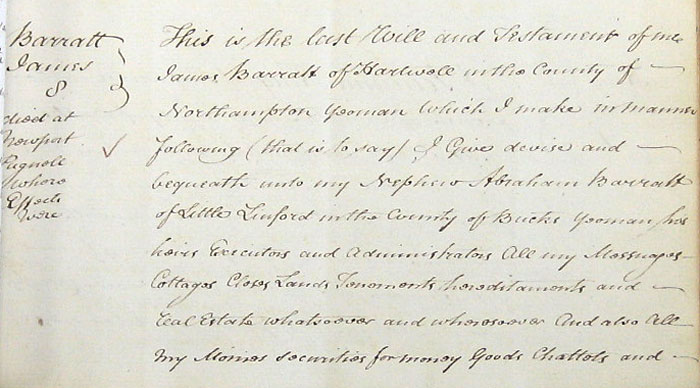 Barratt
James
8
died at
Newport
Pagnell
where
Effects
were
This is the last Will and Testament of me
James Barratt of Hartwell in the County of —
Northampton Yeoman which I make in manner
following (that is to say) I Give devise and —
bequeath unto my Nephew Abraham Barratt
of Little Linford in the County of Bucks Yeoman his
heirs Executors and Administrators All my Messuages
Cottages Closes Lands Tenements hereditaments and —
real Estate whatsoever and wheresoever And also All —
my Monies securities for money Goods Chattels and —